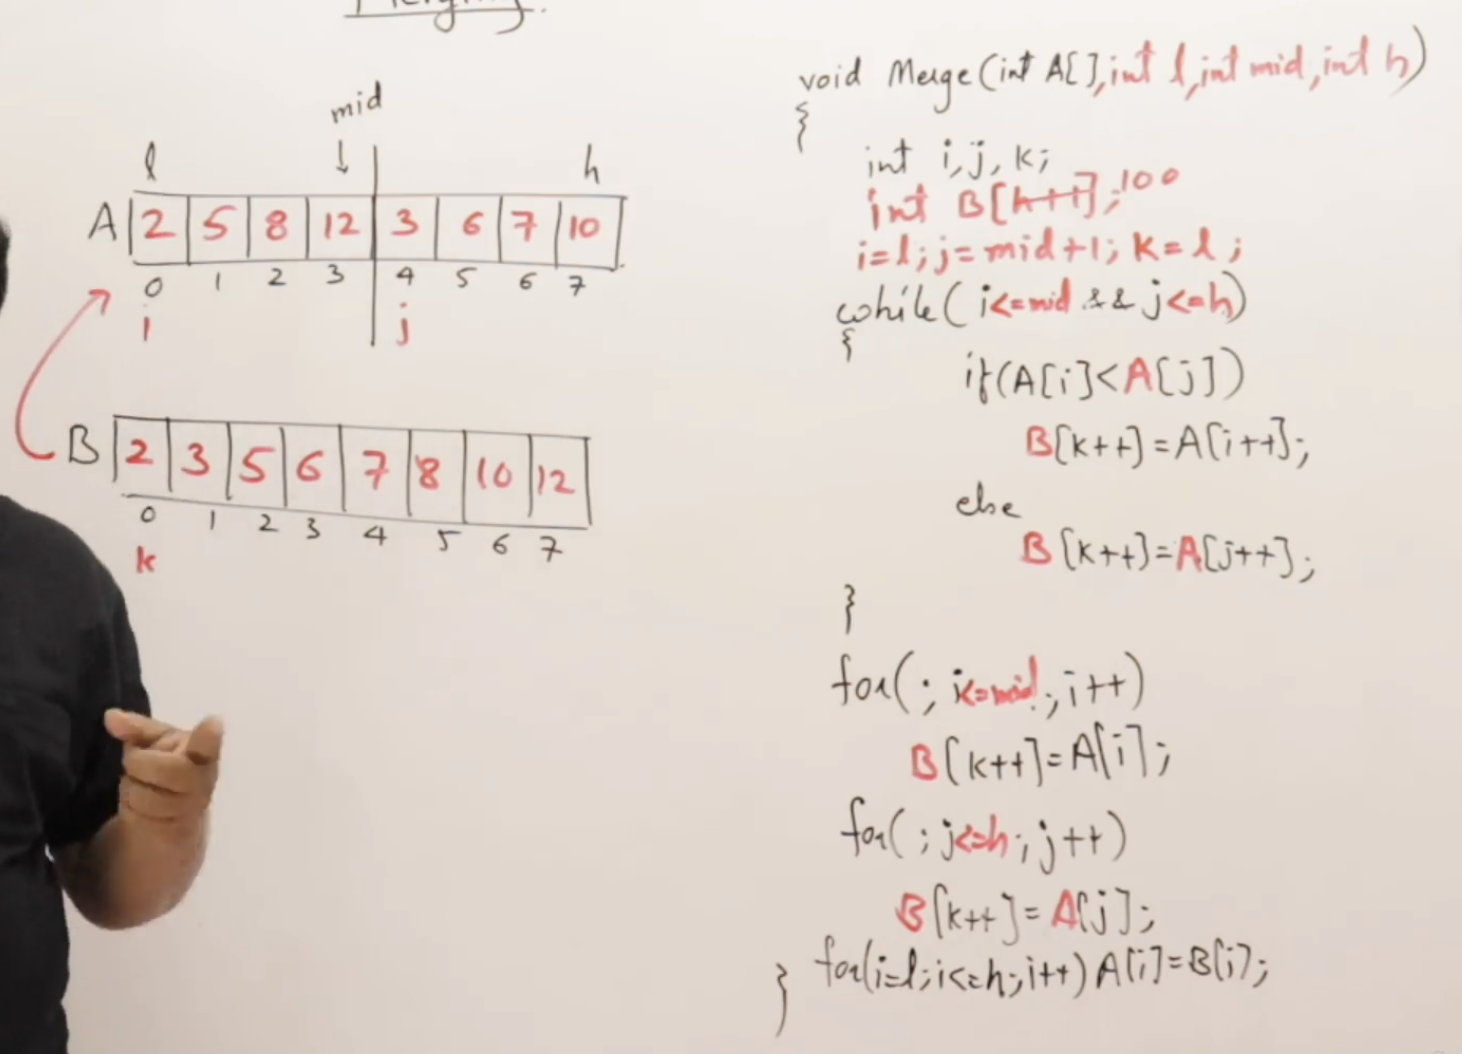 Merging.
mid
l h
A 2 5 8 12 3 6 7 10
0 1 2 3 4 5 6 7
i j
B 2 3 5 6 7 8 10 12
0 1 2 3 4 5 6 7
k
void Merge(int A[],int l,int mid,int h)
{
int i,j,k;
int B[h+1];100
i=l;j=mid+1;k=l;
while(i<=mid && j<=h)
{
if(A[i]<A[j])
B[k++]=A[i++];
else
B[k++]=A[j++];
}
for(;i<=mid;i++)
B[k++]=A[i];
for(;j<=h;j++)
B[k++]=A[j];
for(i=l;i<=h;i++)A[i]=B[i];
}